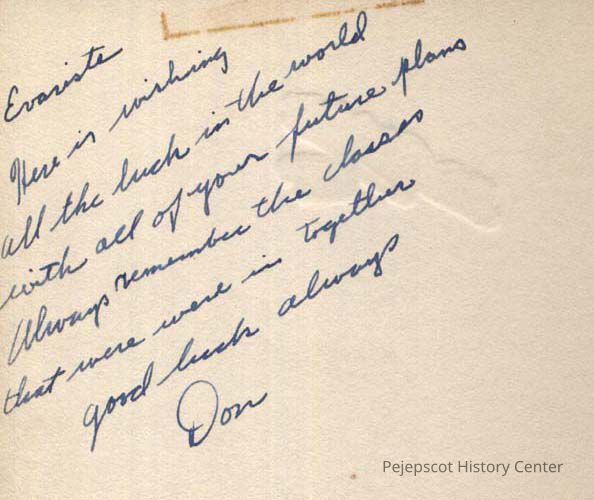 Evariste
Here is wishing
all the luck in the world
with all of your future plans
Always remember the classes
that were were in together
good luck always
Don
Pejepscot History Center